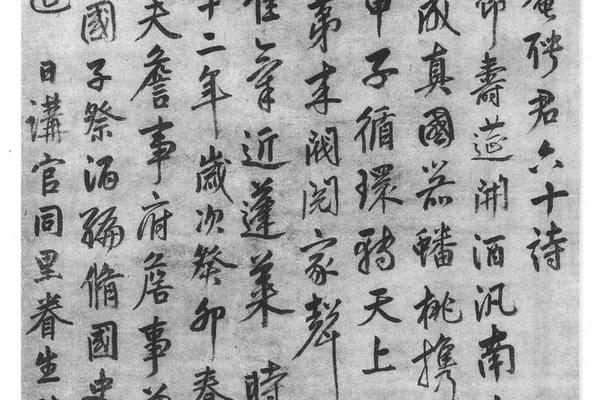 庵聘君六十詩
節壽筵開酒汎南
成真國器蟠桃携
甲子循環轉天上
第来閥閱家聲
佳氣近蓬萊 時
十二年歲次癸卯春
夫詹事府詹事兼
國子祭酒編脩國史
日講官同里眷生